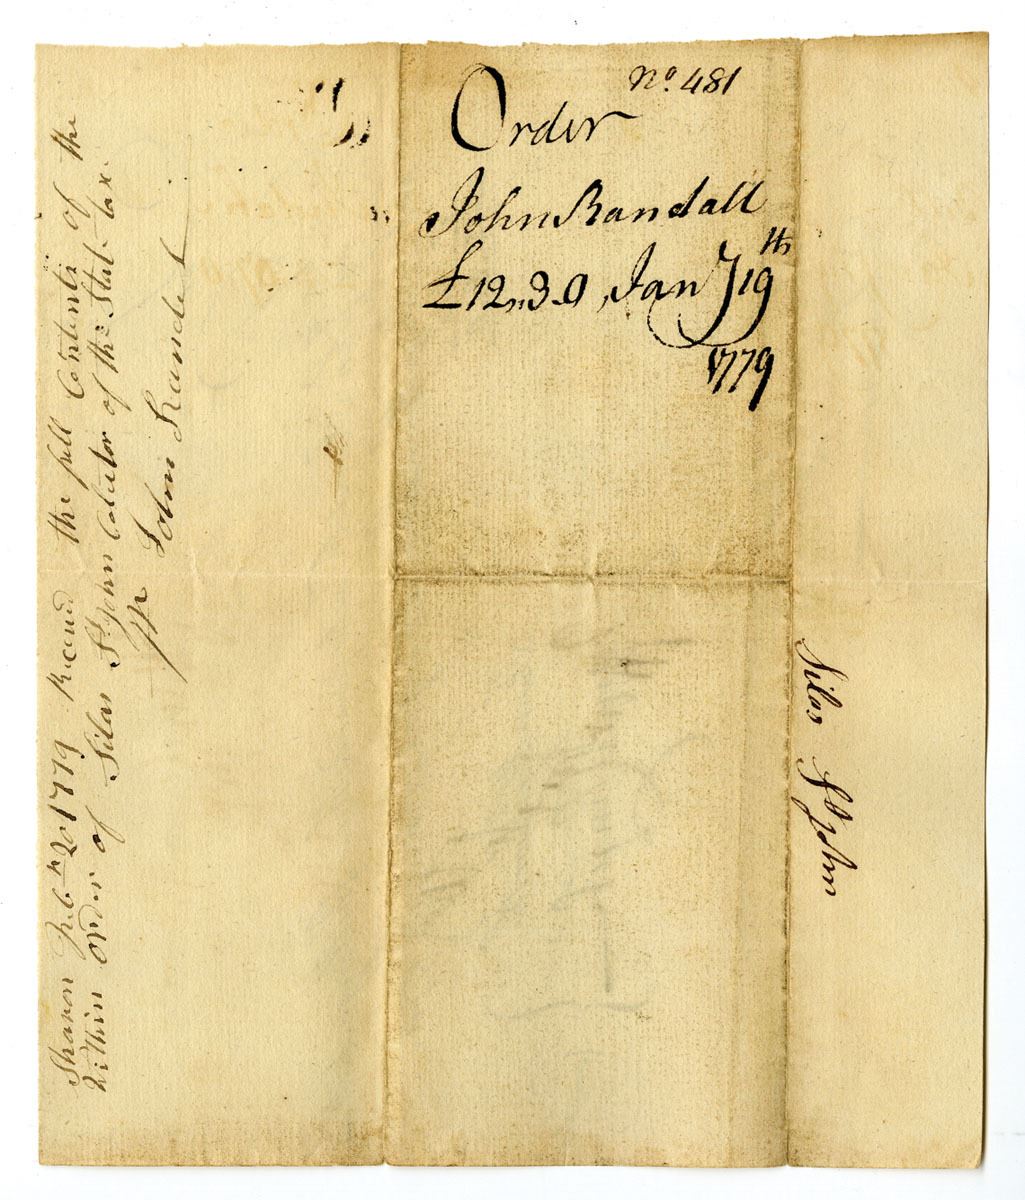 Nº. 481
Order
John Randall
£12,,3..0, Janʸ 19th
1779
Sharon Febry 20 1779 Receivd the full Contents of the
within order of Silas St John Colector of the State tax
pr John Randel
Silas St John